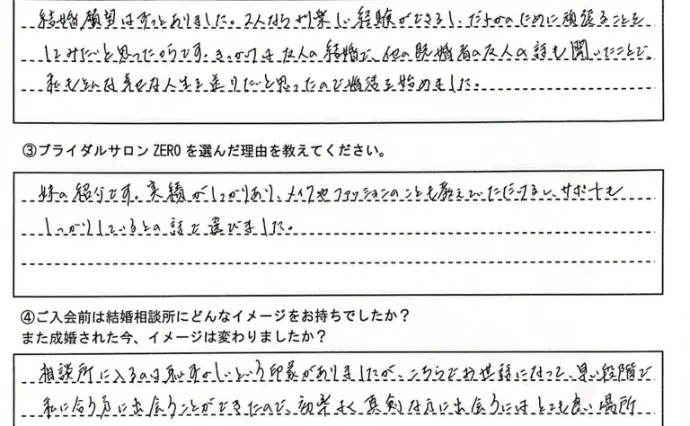 結婚願望はずっとありました。2人なら判楽しい経験ができるし、だれかのために頑張ることを
してみたいと思ったからです。きっかけは友人の結婚で、他の既婚者の友人の話も聞いたことで
私もそんな幸せな人生を送りたいと思ったので婚活を始めました。
③ブライダルサロン ZERO を選んだ理由を教えてください。
妹の紹介です。実績がしっかりあり、メイクやファッションのことも教えていただけるし、サポートも
しっかりしているとの話で選びました。
④ご入会前は結婚相談所にどんなイメージをお持ちでしたか？
また成婚された今、イメージは変わりましたか？
相談所に入るのは恥ずかしいという印象がありましたが、こちらでお世話になって、早い段階で
私に合う方に出会うことができたので、効率よく真剣な方に出会うにはとても良い場所